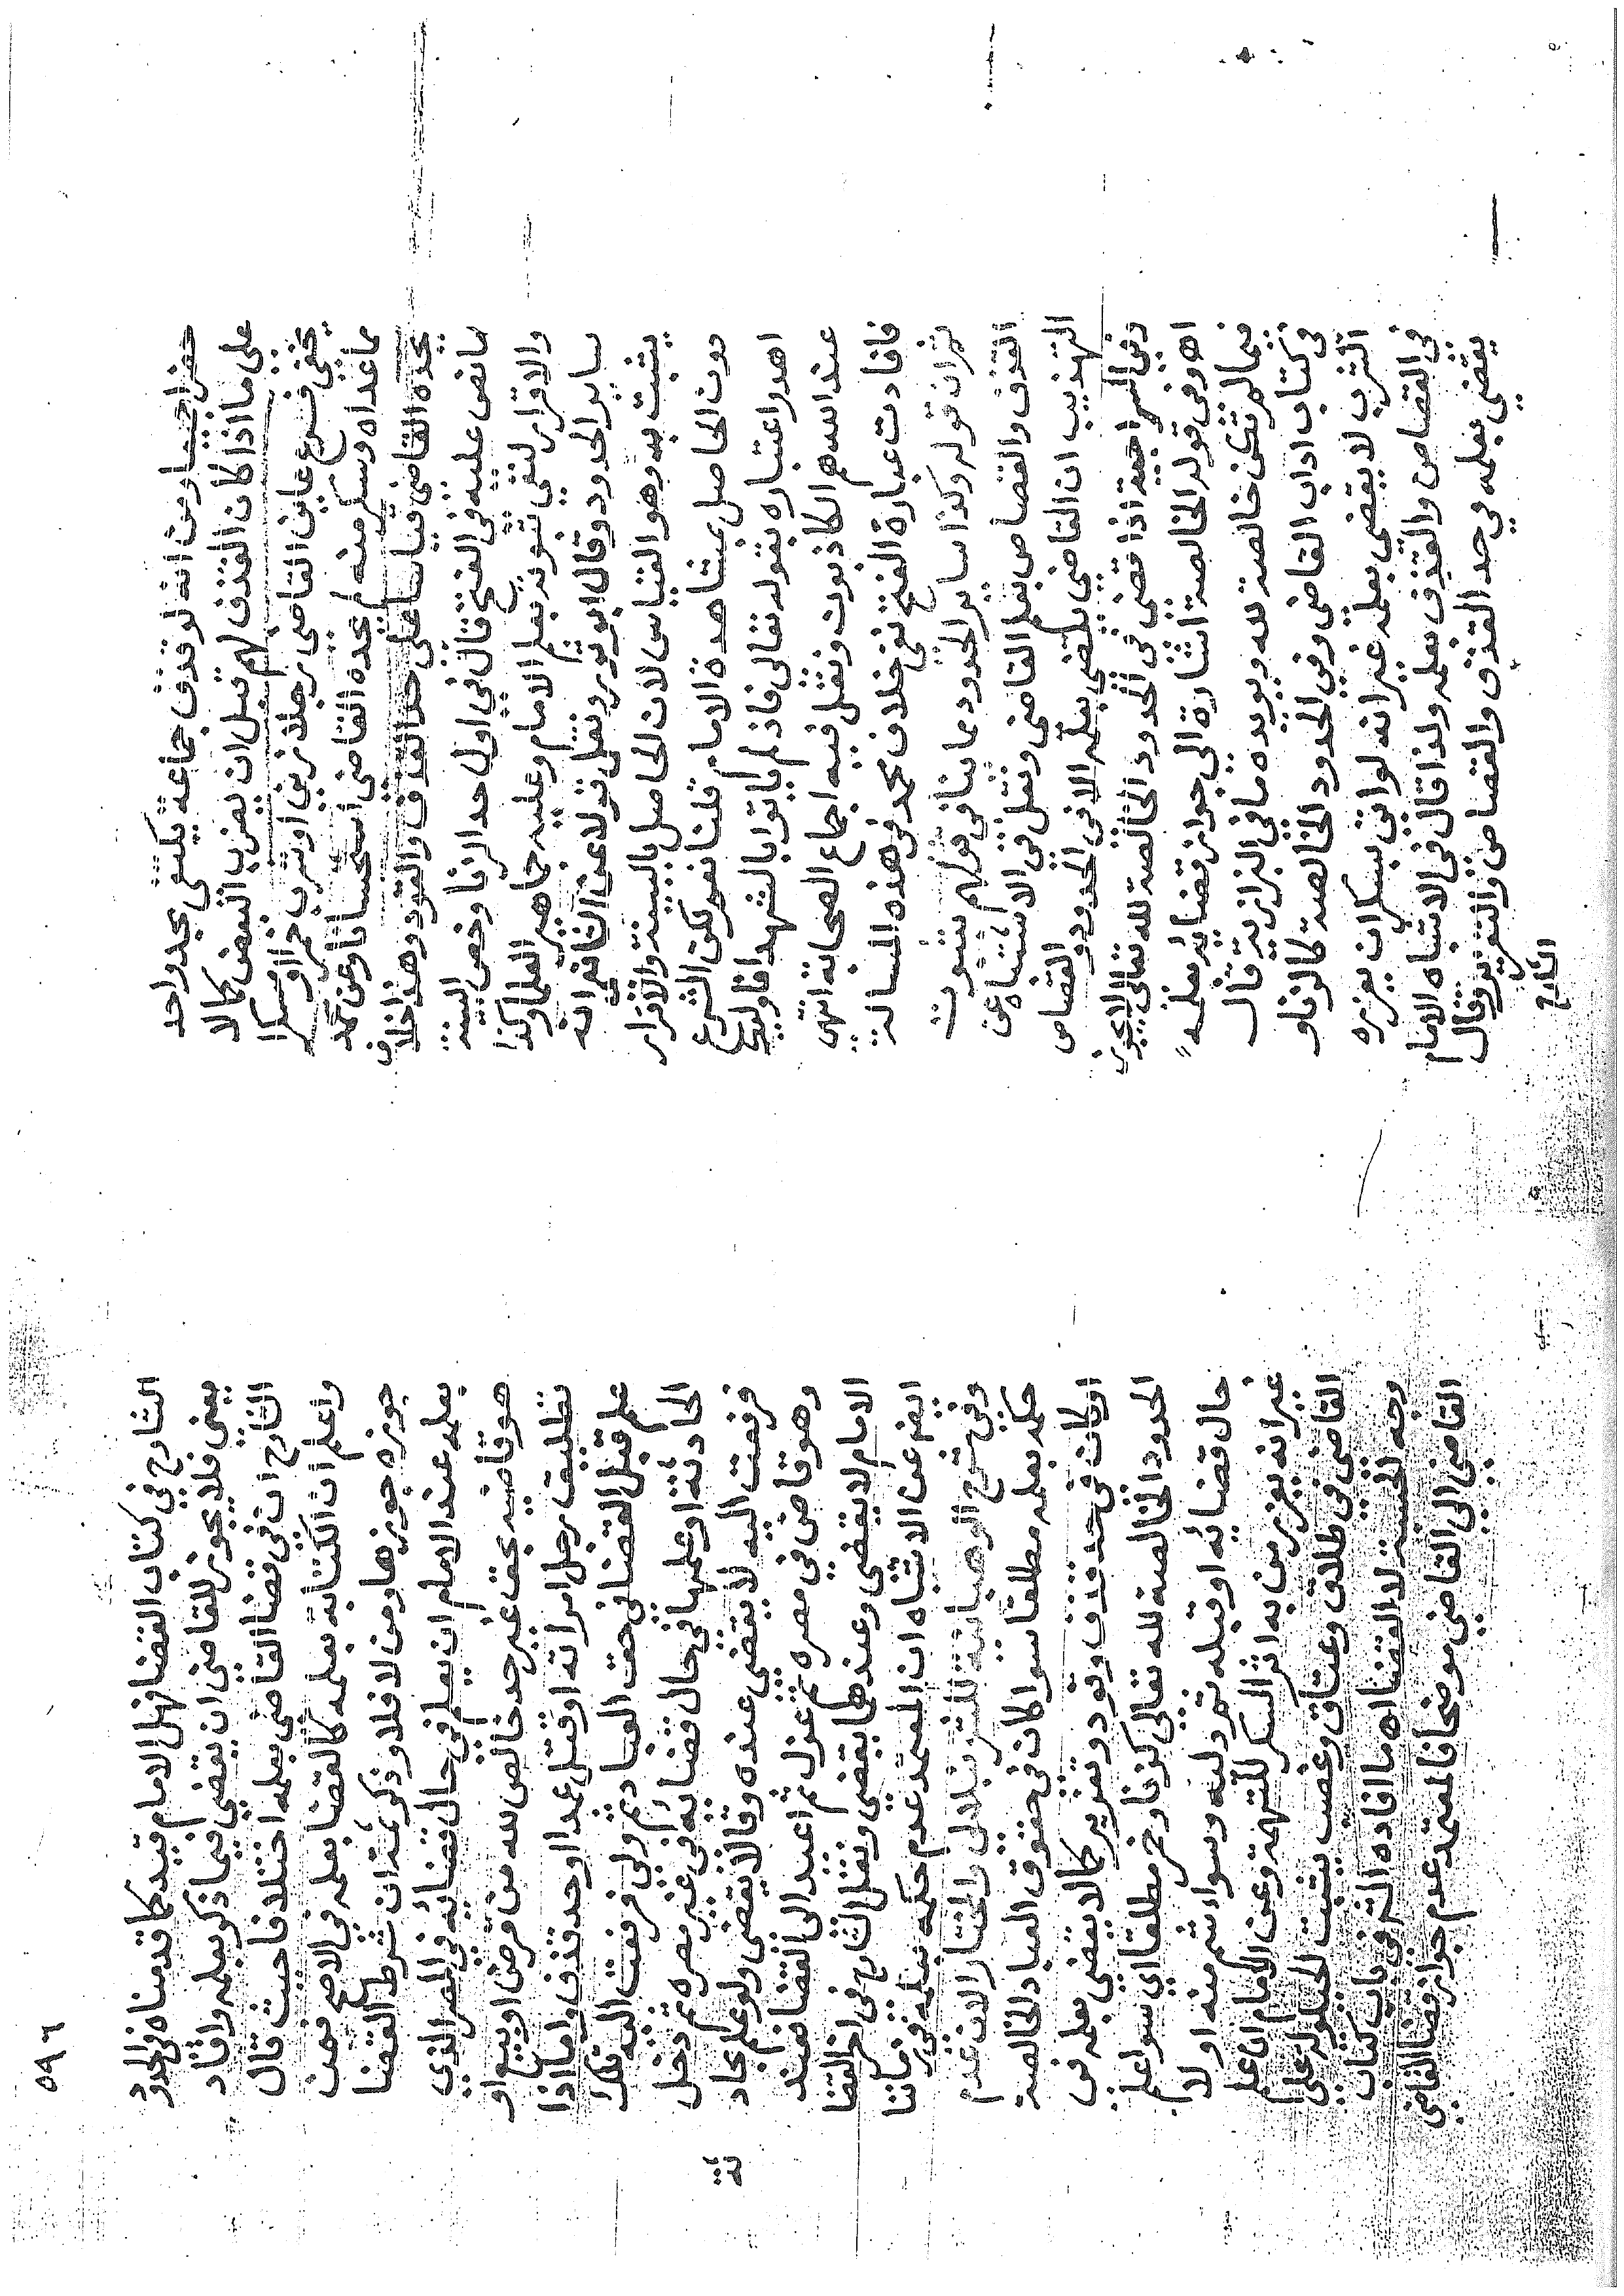 حضر اجيبا ومن انه لو قذف جماعة يكتفى بحد واحد
على ما اذا كان القذف لهم قبل ان يضرب البعض كما لا
يخفى فـــرع عاين القاضى رجلا زنى او شرب خمرا او مسكرا
مما عداه وسكر منه لم يحده القاضى استحسانا وعن محمد
يحده القاضى قياسا على حد القذف والقود وهذا خلاف
ما نص عليه فى الفتح قال في اول حد الزنا وخص البينة
والاقرار لنفى ثبوته بعلم الامام وعليه جماهير العلما وكذا
ساير الحدود وقال ابو ثور ونقل قولا عن الشافعى انه
يثبت به وهو القياس لان الحاصل بالبينة والاقرار
دون الحاصل بمشاهدة الامام قلنا نعم لكن الشرع
اهدر اعتباره بقوله تعالى فاذ لم ياتوا بالشهدا فاوليك
عند الله هم الكاذبون ونقل فيه اجماع الصحابة انتهى
فافادت عبارة الفتح نفى خلاف محمد فى هذه المسالة
ثم ان قوله وكذا ساير الحدود مما ينافى قولهم بثبوت
القذف والقصاص بعلم القاضى ونقل فى الاشباه عن
التهذيب ان القاضى يقضى بعلمه الا فى الحدود والقصاص
وفى السراجية اذا قضى فى الحدود الخالصة لله تعالى لا يجوز
اه وفى قوله الخالصة اشارة الى جواز قضايه بعلمه
فيما لم تكن خالصة لله ويويده ما فى البزازية قال
فى كتاب اداب القاضى وفى الحدود الخالصة كالزنا و
الشرب لا يقضى بعلمه غير انه لو اتى بسكران يعزره
فى القصاص والقذف بعلمه ولذا قال فى الاشباه الامام
يقضى بعلمه في حد القذف والقصاص والتعزير وقال
الشارح
٥٩٦
الشارح في كتاب القضا فهل الامام قيد كما قدمناه فى الحدود
يعنى فلا يجوز للقاضى ان يقضي فيما ذكر بعلمه وافاد
الشارح ان فى قضا القاضى بعلمه اختلافا حيث قال
واعلم ان الكتابة بعلمه كالقضا بعلمه في الاصح فمن
جوزه جوزها ومن لا فلا وذكر ثمة ان شرط القضا
بعلمه عند الامام ان يعلم في حال قضائه في المصر الذي
هو قاضيه بحق غير حد خالص لله من قرض او بيع او
تطليق رجل امراته او قتل عمدا او حد قذف واما اذا
علم قبل القضا في حق العباد ثم ولي فرفعت اليه تلك
الحادثة او علمها في حال قضايه في غير مصره ثم دخل
فرفعت اليه لا يقضي عنده وقالا يقضى ولو علم بحادثة
وهو قاض في مصره ثم عزل ثم اعيد الى القضا فعند
الامام لا يقضي وعندهما يقضى ونقل الشارح فى اخر القضا
ايضا عن الاشباه ان المعتمد عدم حكمه بعلمه في زماننا
وفي شرح الوهبانية للشرنبلالى والمختار الان عدم
حكمه بعلمه مطلقا سوا كان فى حقوق العباد الخالصة
او كان فى حد قذف وقود وتعزير كما لا يقضي بعلمه فى
الحدود الخالصة لله تعالى كزنا وخمر مطلقا اي سوا علم
حال قضايه او قبله توليه وسوا شم منه او لا
غير انه يعزر من به اثر السكر للتهمة وعن الامام ان علم
القاضى في طلاق وعتاق وغصب يثبت الحيلولة على
وجه الحسبة لا القضا اه ما افاده الشر في باب كتاب
القاضي الى القاضي موضحا فالمعتمد عدم جواز قضا القاضي